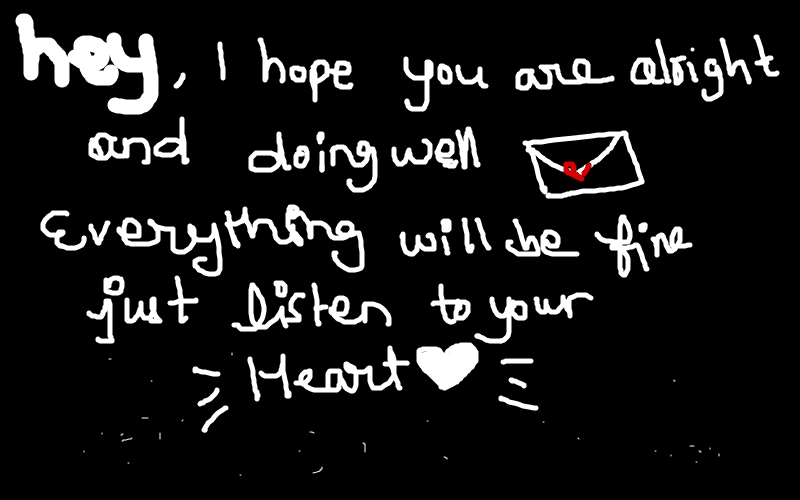 hey, I hope you are alright
and doing well
Everything will be fine
just listen to your
Heart